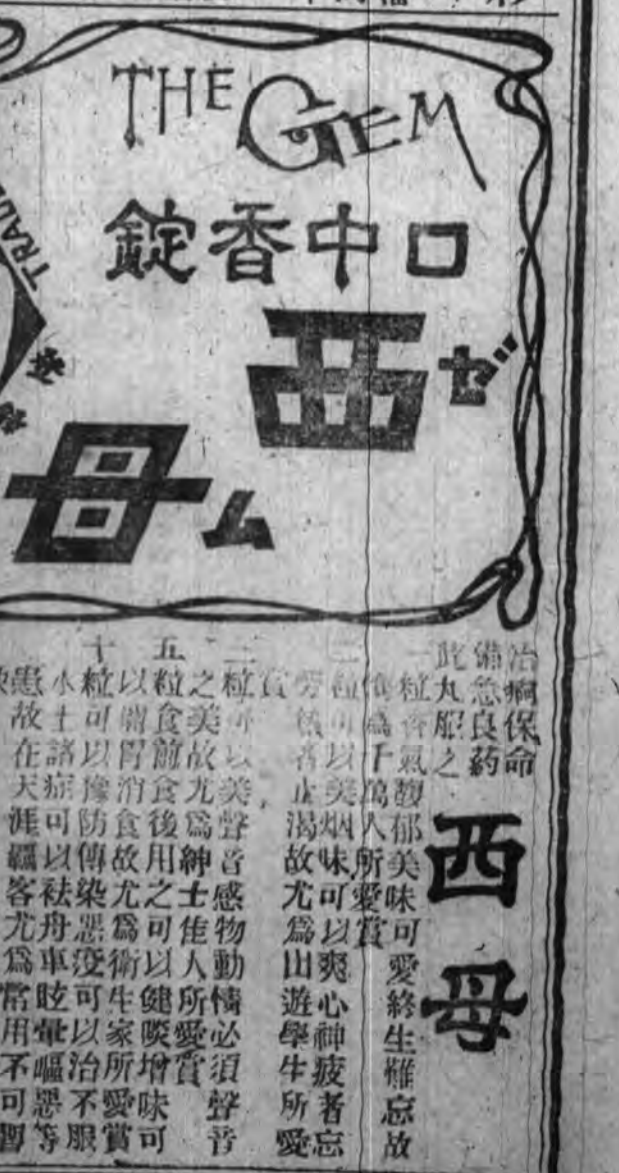 THE GEM
口中香錠
西ゼ
母ム
TRADE
治痾保命
備急良葯
此丸服之
西母
一粒香氣馥郁美味可愛終生難忘故
爲千萬人所愛賞
二粒可以美烟味可以爽心神疲者忘
勞熱者止渴故尤爲山遊學生所愛
賞
三粒可以美聲音感物動情必須聲音
之美故尤爲紳士佳人所愛賞
五粒食前食後用之可以健啖增味可
以開胃消食故尤爲衛生家所愛賞
十粒可以豫防傳染惡疫可以治不服
水土諸症可以袪舟車眩暈嘔惡等
患故在天涯羈客尤爲常用不可暫